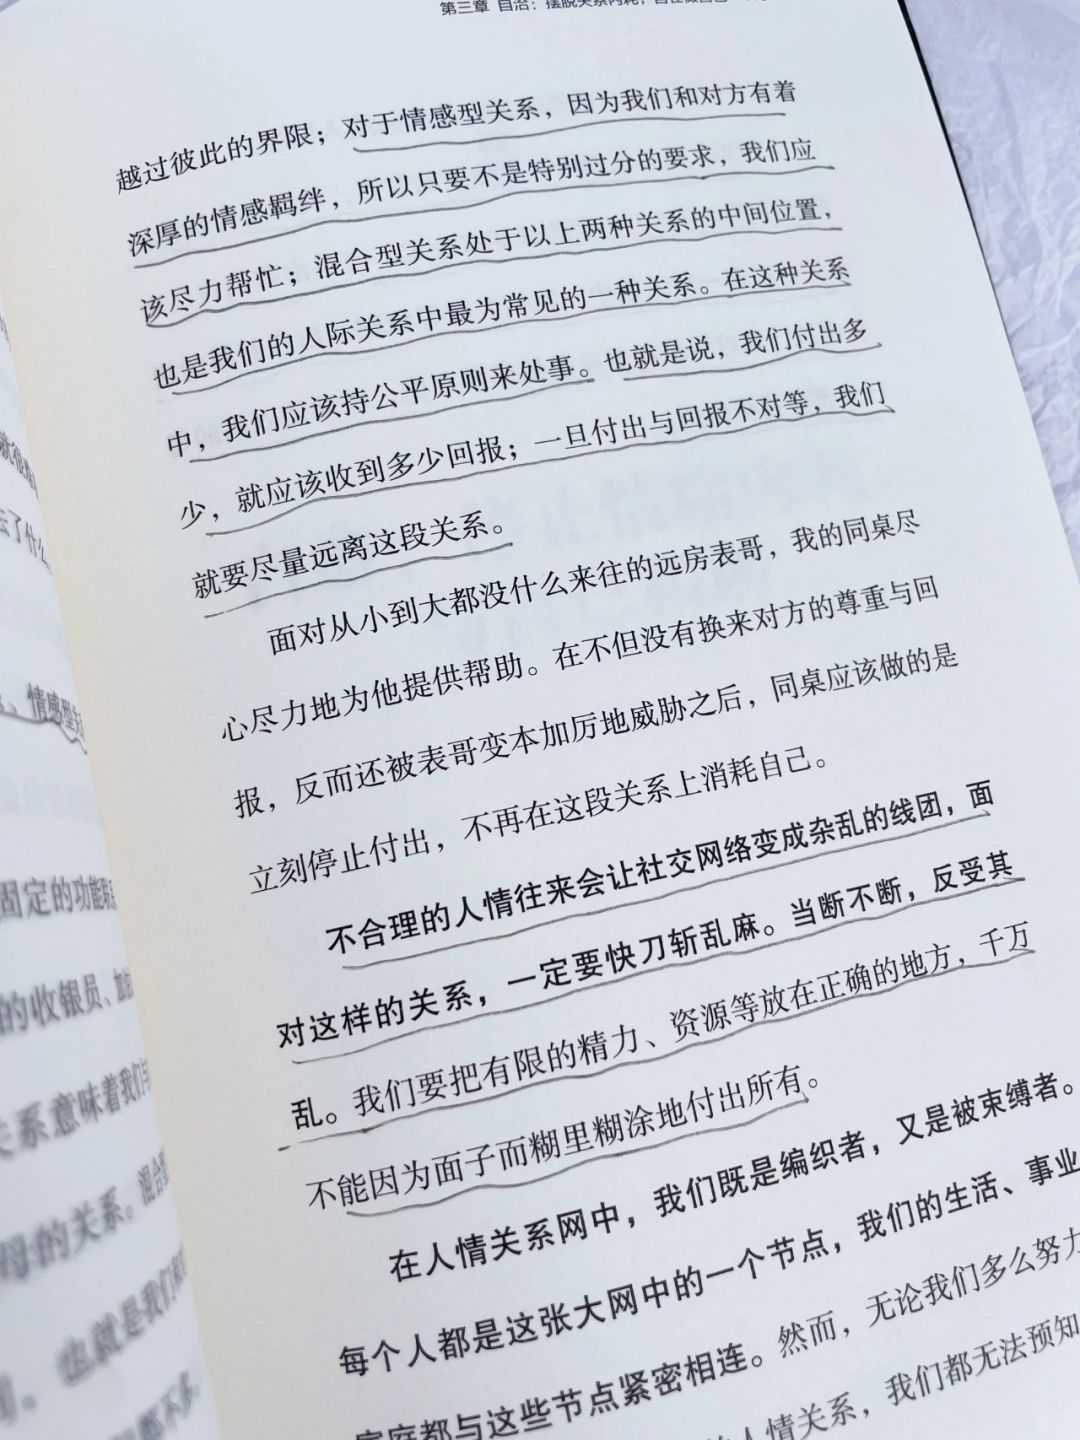 第三章 自洽：摆脱关系内耗，自在做自己
越过彼此的界限；对于情感型关系，因为我们和对方有着
深厚的情感羁绊，所以只要不是特别过分的要求，我们应
该尽力帮忙；混合型关系处于以上两种关系的中间位置，
也是我们的人际关系中最为常见的一种关系。在这种关系
中，我们应该持公平原则来处事。也就是说，我们付出多
少，就应该收到多少回报；一旦付出与回报不对等，我们
就要尽量远离这段关系。
面对从小到大都没什么来往的远房表哥，我的同桌尽
心尽力地为他提供帮助。在不但没有换来对方的尊重与回
报，反而还被表哥变本加厉地威胁之后，同桌应该做的是
立刻停止付出，不再在这段关系上消耗自己。
不合理的人情往来会让社交网络变成杂乱的线团，面
对这样的关系，一定要快刀斩乱麻。当断不断，反受其
乱。我们要把有限的精力、资源等放在正确的地方，千万
不能因为面子而糊里糊涂地付出所有。
在人情关系网中，我们既是编织者，又是被束缚者。
每个人都是这张大网中的一个节点，我们的生活、事业
家庭都与这些节点紧密相连。然而，无论我们多么努力
人情关系，我们都无法预知
去了什么
情感型关
固定的功能联
的收银员、加油
关系意味着我们与
母的关系。混合型
也就是我们
都不多